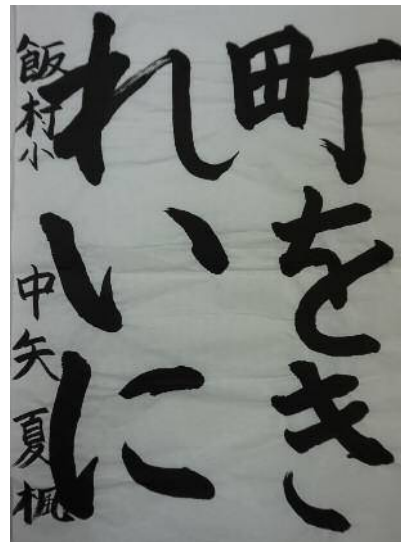 町をき
れいに
飯村小 中矢夏楓